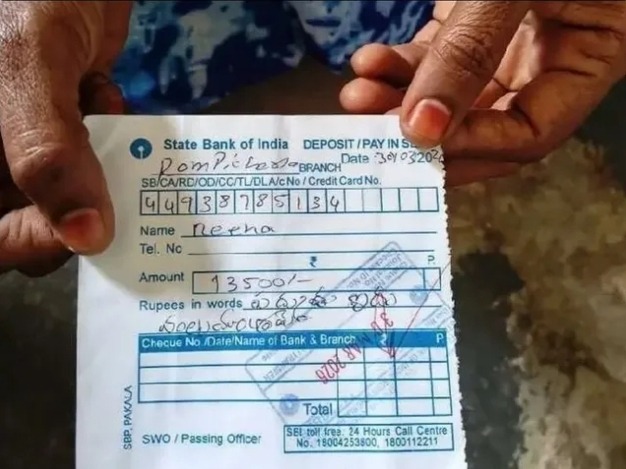 State Bank of India DEPOSIT / PAY IN
BRANCH Date :30/03/202
SB/CA/RD/OD/CC/TL/DLA/c No / Credit Card No.
44938785134
Name Neena
Tel. No
₹ P.
Amount 13500/-
Rupees in words
Checue No./Date/Name of Bank & Branch ₹ P
30 MAR 2026
Total
SBP, PAKALA
SWO / Passing Officer
SBI toll free. 24 Hours Call Centre
No. 18004253800, 1800112211